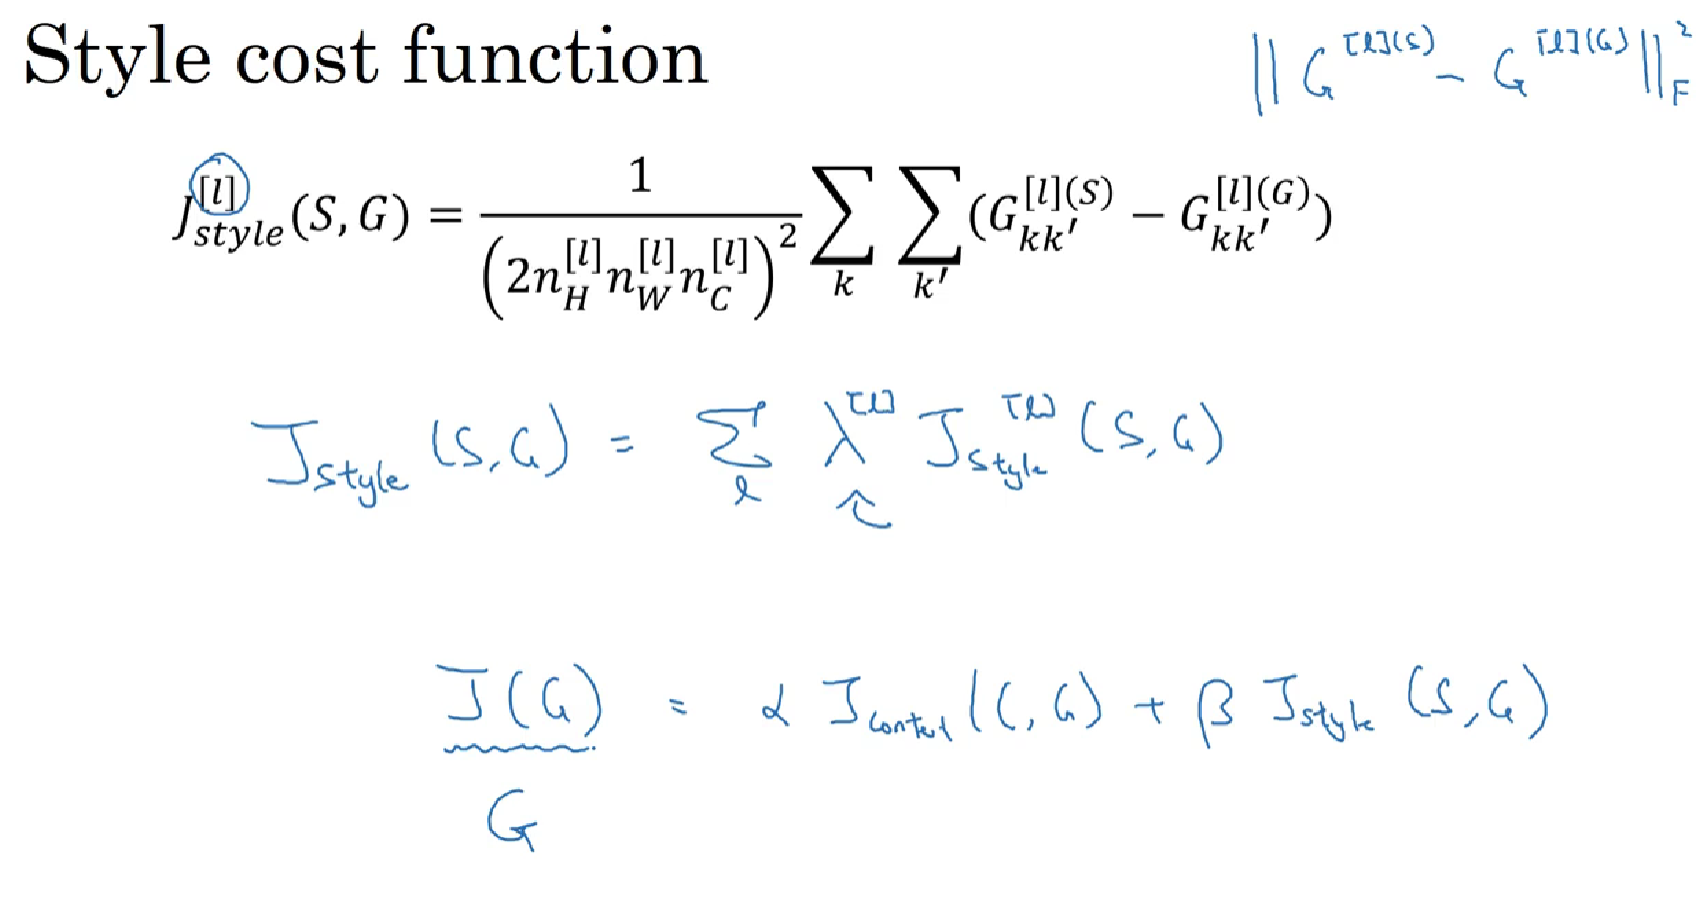 Style cost function
||G^{[l](S)} - G^{[l](G)}||_F^2
J_{style}^{[l]}(S, G) = \frac{1}{(2n_H^{[l]}n_W^{[l]}n_C^{[l]})^2} \sum_k \sum_{k'} (G_{kk'}^{[l](S)} - G_{kk'}^{[l](G)})
J_{style}(S,G) = \sum_l λ^{[l]} J_{style}^{[l]}(S,G)
J(G) = α J_{content}(C,G) + β J_{style}(S,G)
G